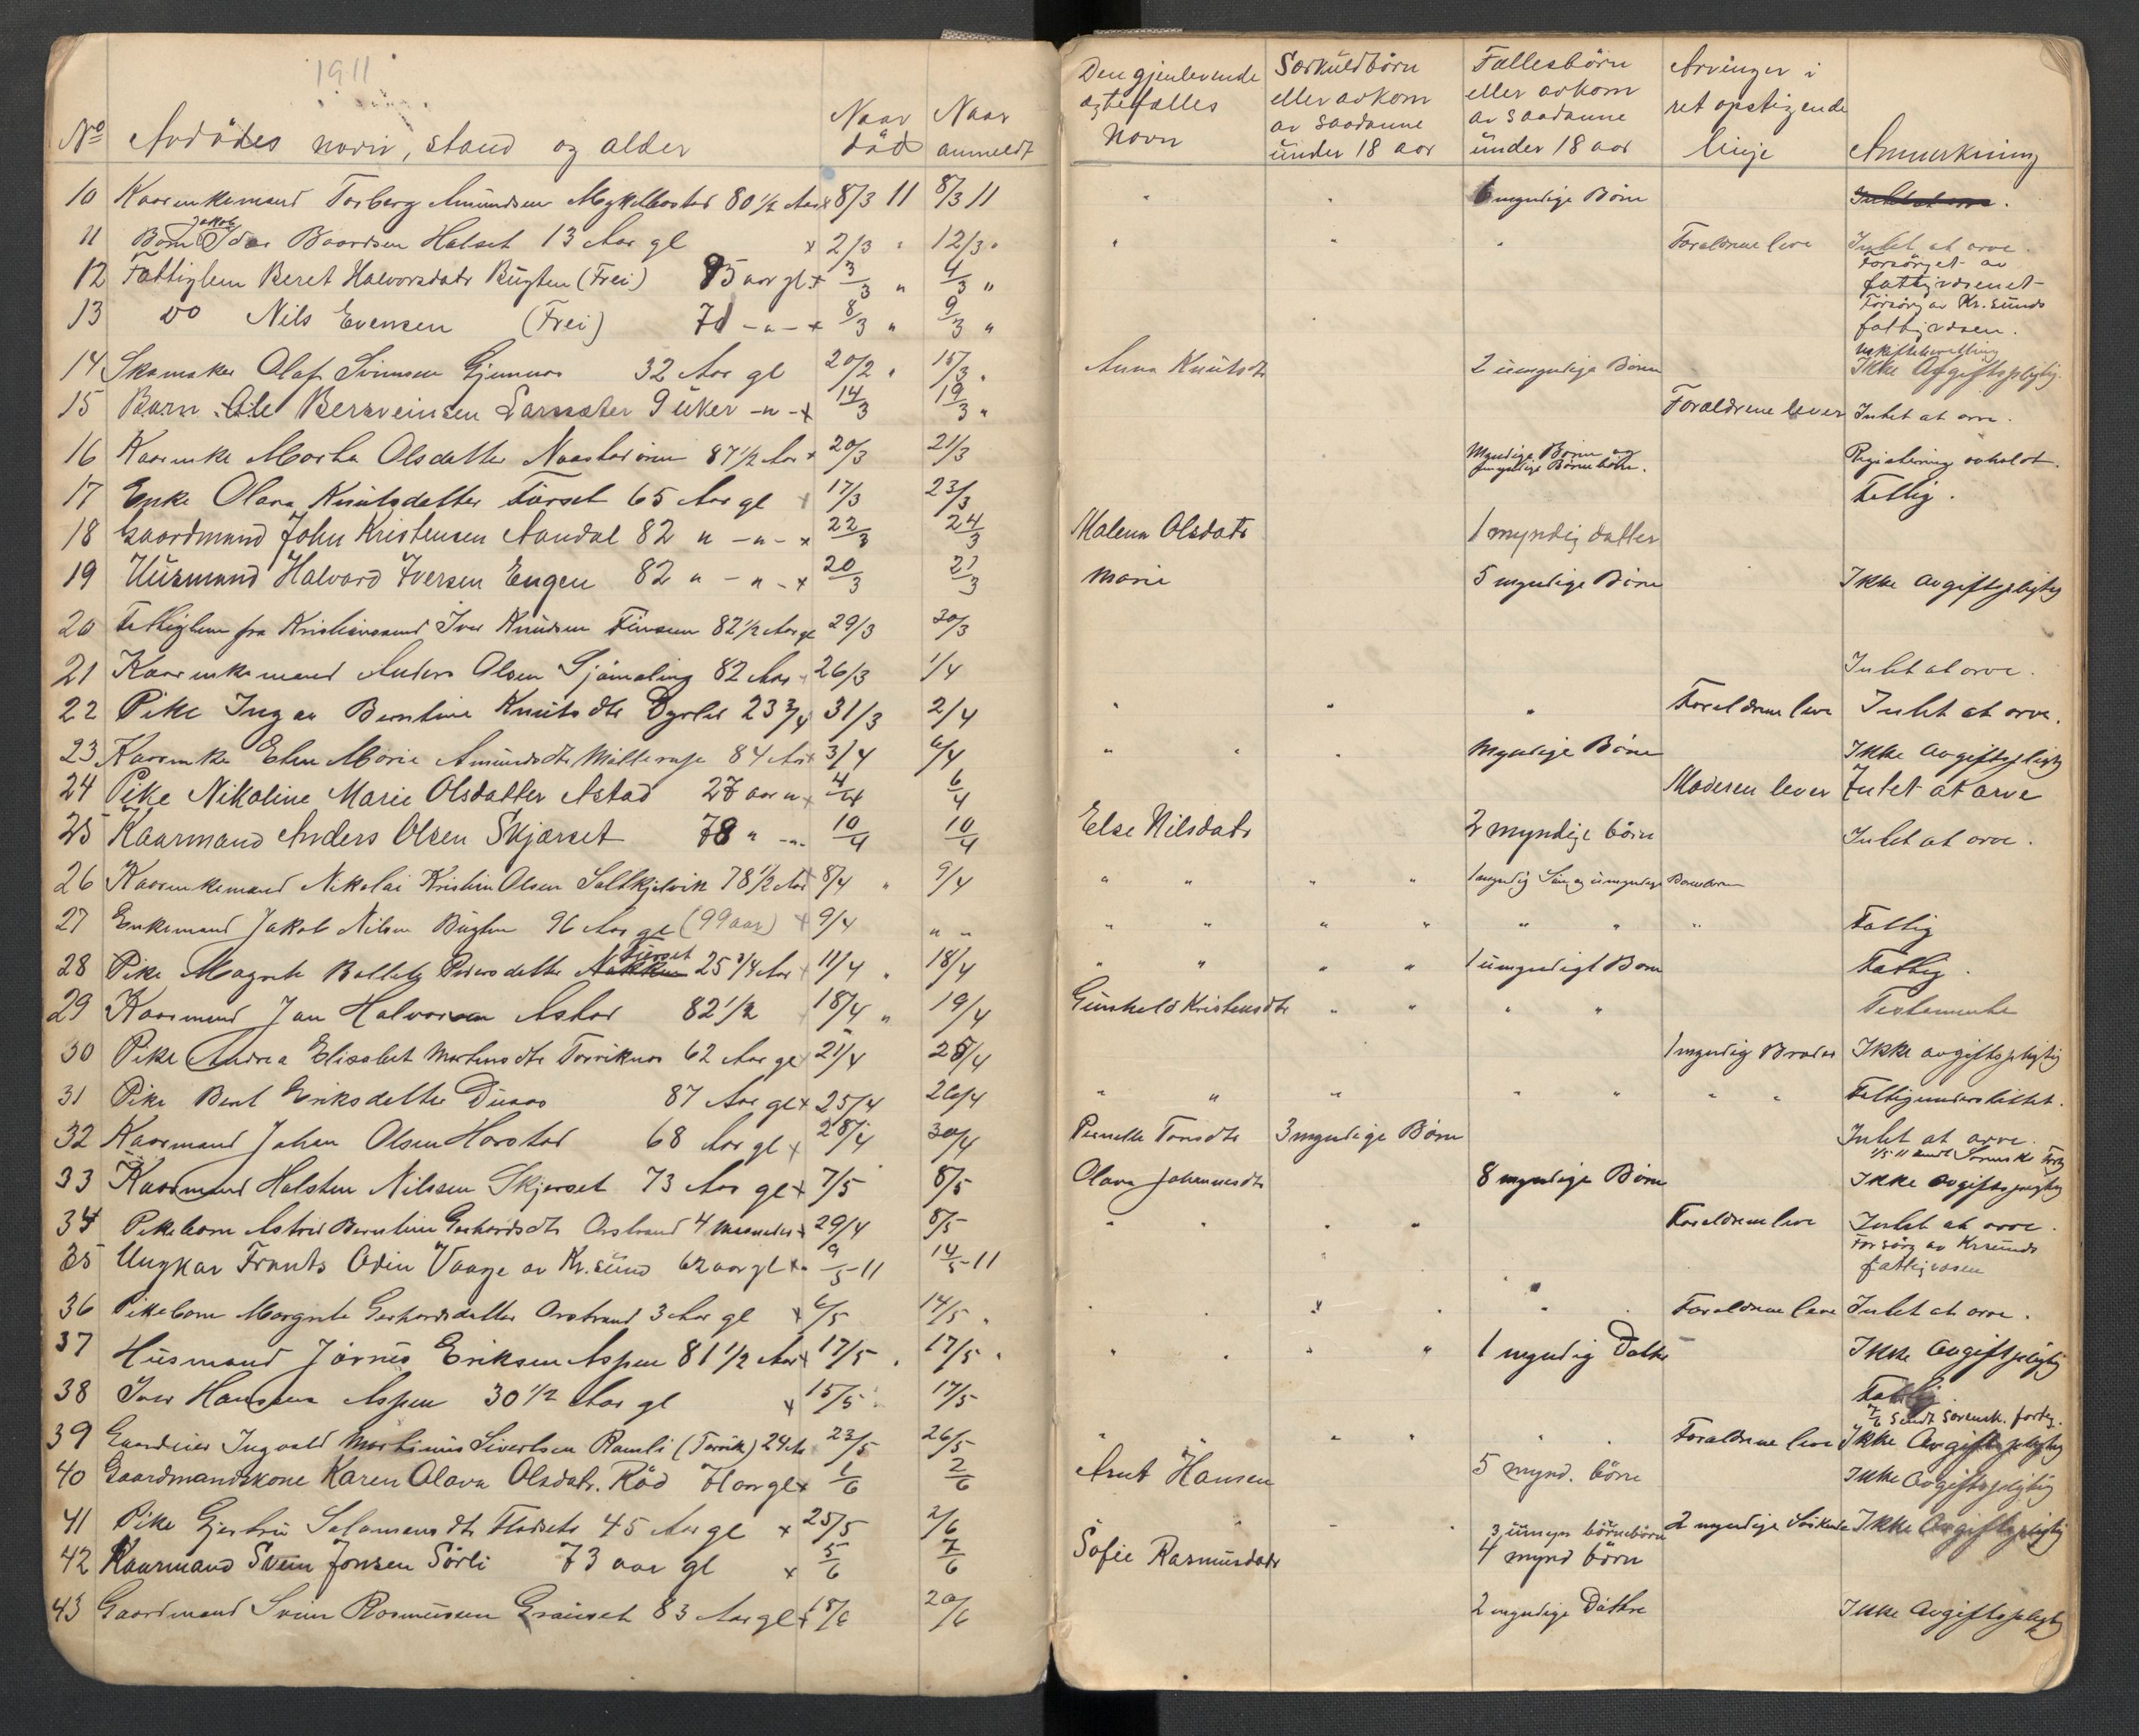 1911
No Avdödes navn, stand og alder Naar död Naar anmeldt Den gjenlevende ægtefælles Navn Særkuldbörn eller avkom av saadanne under 18 aar Fællesbörn eller avkom av saadanne under 18 aar Arvinger i ret opstigende linje Anmerkning
10 Kaarenkemand Torberg Amundsen Myklebostad 80 1/2 Aar x 8/3 11 8/3 11 " " 6 myndige Börn
11 Barn Jakob Idar Baardsen Halset 13 Aar gl x 2/3 " 12/3 " " " " Forældrene leve Intet at arve.
12 Fattiglem Beret Halvorsdatr Bugten (Frei) 85 aar gl x 3/3 " 4/3 " Forsörget av fattigvæsenet
13 do Nils Evensen (Frei) 71 - " - x 8/3 " 9/3 " Forsörg av Kr.sunds fattigvæsen.
14 Skomaker Olaf Sivertsen Gjennes 32 Aar gl 20/2 " 15/3 " Anna Knutsdtr 2 umyndige Börn Uskiftebevilling Ikke Afgiftspligtig
15 Barn Ole Bersveinsen Larssæter 9 uker - " - x 14/3 19/3 " Forældrene lever Intet at arve.
16 Kaarenke Marta Olsdatter Naastadören 87 1/2 Aar x 20/3 21/3 Myndige Börn og umyndige Börnebörn. Registrering avholdt.
17 Enke Olava Knutsdatter Förset 65 Aar gl x 17/3 23/3 Fattig.
18 Gaardmand John Kristensen Aandal 82 " - " - x 22/3 24/3 Malena Olsdatr 1 myndig datter
19 Husmand Halvard Iversen Engen 82 " - " - x 20/3 21/3 Marie 5 myndige Börn Ikke avgiftspligtig
20 Fattiglem fra Kristiansund Iver Knudsen 82 1/2 Aar gl 29/3 30/3
21 Kaarenkemand Anders Olsen Sjömæling 82 Aar x 26/3 1/4 Intet at arve.
22 Pike Inga Berntine Knutsdtr Dyrlid 23 3/4 31/3 2/4 " " " Forældrene leve Intet at arve.
23 Kaarenke Elen Marie Amundsdtr 84 Aar x 3/4 6/4 " " " Myndige Börn Ikke Avgiftspligtig
24 Pike Nikoline Marie Olsdatter Astad 27 aar " x 4/4 6/4 Moderen lever Intet at arve
25 Kaarmand Anders Olsen Skjærset 78 " - " - 10/4 10/4 Else Nilsdatr 2 myndige börn Intet at arve.
26 Kaarenkemand Nikolai Kristian Olsen Saltkjelvik 78 1/2 Aar x 8/4 " 9/4 " " " " 1 myndig Sön og umyndige Barnebarn
27 Enkemand Jakob Nilsen Bugten 96 Aar gl (99 aar) x 9/4 " " " " " " " " " Fattig
28 Pike Magrete Bolletg Pedersdatter Furset 25 3/4 Aar x 11/4 " 18/4 " " " " 1 umyndigt Barn Fattig.
29 Kaarmand Jan Halvorsen Astad 82 1/2 18/4 " 19/4 Gunhild Kristensdtr " " " " Testamente
30 Pike Andrea Elisabet Martinsdtr Torviknes 62 Aar gl x 21/4 25/4 1 myndig Broder Ikke avgiftspligtig
31 Pike Berit Eriksdatter Duaas 87 Aar gl x 25/4 26/4 " " " " " " " Fattigunderstöttet.
32 Kaarmand Johan Olsen Harstad 68 Aar gl x 28/4 30/4 Pernelle Torsdtr 3 myndige Börn Intet at arve.
33 Kaarmand Halsten Nilssen Skjærset 73 Aar gl x 7/5 8/5 Olava Johannesdtr 8 myndige Börn 1/5 11 sendt Sorensk. Fort. Ikke avgiftspligtig
34 Pikebarn Astrid Berntine Gerhardsdtr Orstrand 4 Maaneder x 29/4 8/5 " " " " Forældrene leve Intet at arve.
35 Ungkar Frants Odin Vaage av Kr.sund 62 aar gl x 9/5 - 11 14/5 - 11 Forsörg av Krsunds fattigvæsen
36 Pikebarn Margrete Gerhardsdatter Orstrand 3 Aar gl x 6/5 14/5 " " " " " Forældrene leve Intet at arve.
37 Husmand Jörnes Eriksen Aspen 81 1/2 Aar x 17/5 " 17/5 " " " " " 1 myndig Datter Ikke Avgiftspligtig
38 Iver Hansen Aspen 30 1/2 Aar gl x 15/5 " 17/5 Fattig
39 Gaardeier Ingvald Martinus Sivertsen Ramli (Torvik) 24 Ar 23/5 26/5 " " " " " Forældrene leve 7/6 Sendt sorensk. fortg. Ikke Avgiftspligtig
40 Gaardmandskone Karen Olava Olsdatr. Röd 71 aar gl x 1/6 2/6 Arnt Hansen 5 mynd. börn Ikke Avgiftspligtig
41 Pike Gjertru Salamonsdtr Fladsete 45 Aar gl x 25/5 2/6 " " " 2 myndige Söskende Ikke Avgiftspligtig
42 Kaarmand Svein Jonsen Sörli 73 aar gl x 5/6 7/6 Sofie Rasmusdatr 3 umyn börnebörn 4 mynd börn
43 Gaardmand Svein Rasmussen Granset 83 Aar gl x 18/6 20/6 2 myndige Döttre Ikke Avgiftspligtig